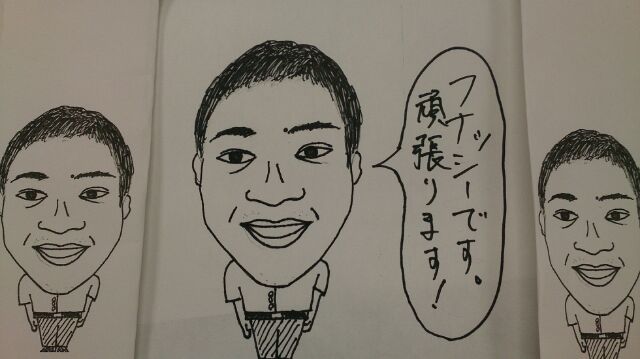 フナッシーです。
頑張ります!